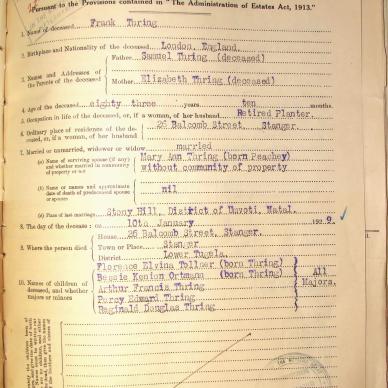 Pursuant to the Provisions contained in "The Administration of Estates Act, 1913."
1. Name of deceased Frank Thring
2. Birthplace and Nationality of the deceased London, England.
3. Names and Addresses of the Parents of the deceased
Father Samuel Thring (deceased)
Mother Elizabeth Thring (deceased)
4. Age of the deceased eighty three years ten months.
5. Occupation in life of the deceased, or, if a woman, of her husband Retired Planter.
6. Ordinary place of residence of the deceased, or, if a woman, of her husband 26 Balcomb Street, Stanger.
7. Married or unmarried, widower or widow married
(a) Name of surviving spouse (if any) and whether married in community of property or not
Mary Ann Thring (born Peachey)
without community of property
(b) Name or names and approximate date of death of predeceased spouse or spouses
nil
(c) Place of last marriage Stony Hill, District of Umvoti, Natal.
8. The day of the decease: on 10th January 1929.
9. Where the person died
House 26 Balcomb Street, Stanger.
Town or Place Stanger
District Lower Tugela.
10. Names of children of deceased, and whether majors or minors
Florence Elvina Tollner (born Thring)
Bessie Kenion Ortmann (born Thring)
Arthur Francis Thring
Percy Edward Thring
Reginald Douglas Thring
All Majors.